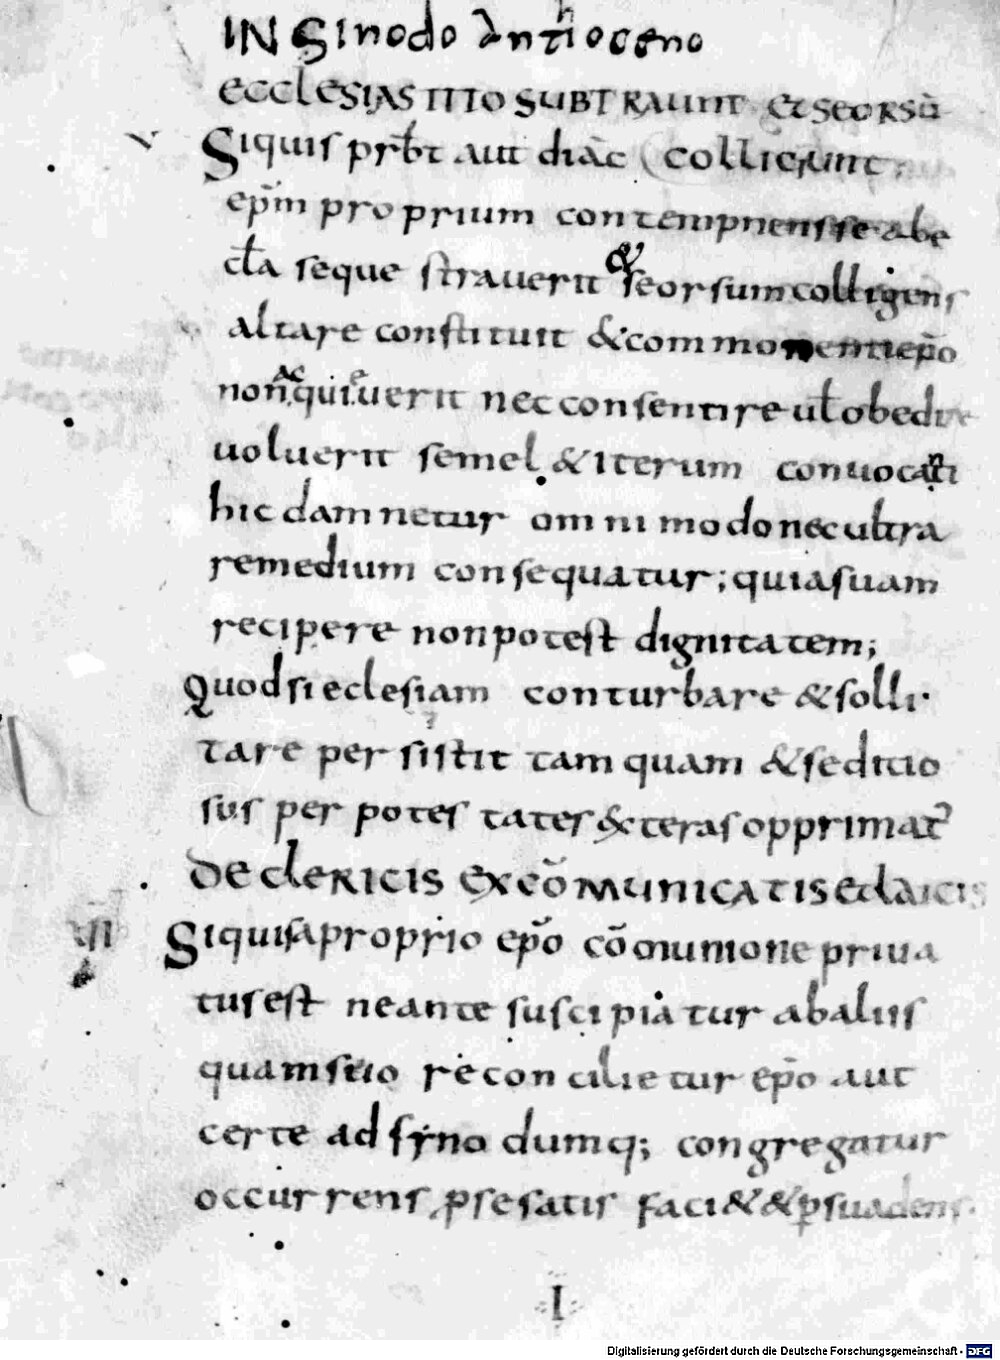 IN Sinodo Antihoceno
ecclesiastito subtraunt et seorsū
V Siquis prb̄t aut diac̄ colligunt
ep̄m proprium contempnens se abe
cl̄a sequestraverit & seorsum colligens
altare constituit & commonenti ep̄o
non acquieverit nec consentire ul̄ obedire
uoluerit semel & iterum conuocanti
hic damnetur omnimodo nec ultra
remedium consequatur; quia suam
recipere non potest dignitatem;
Quod si eclesiam conturbare & solli
tare persistit tamquam & seditio
sus per potestates exteras opprimat᾿
De clericis excōmunicatis et laicis
VI Siquis a proprio ep̄o cōmunione priua
tus est ne ante suscipiatur ab aliis
quam suo reconcilietur ep̄o aut
certe ad synodum q; congregatur
occurrens p̱ se satis faci& & p̱suadens.
I
Digitalisierung gefördert durch die Deutsche Forschungsgemeinschaft - DFG